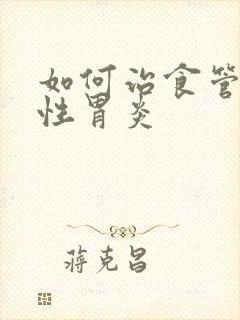 如何治食管
性胃炎
蒋克昌